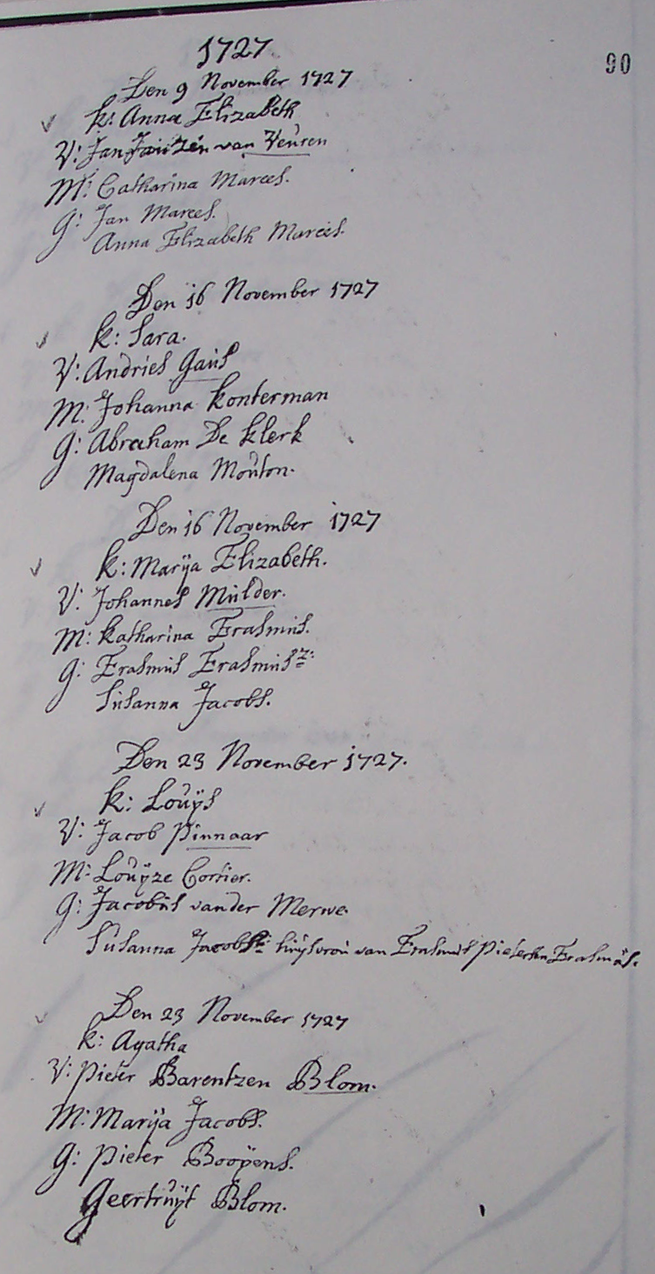 1727
90
Den 9 November 1727
k: Anna Elizabeth
V: Jan Jantzen van Veuren
M: Catharina Marees.
G: Jan Marees.
Anna Elizabeth Marees.
Den 16 November 1727
k: Sara.
V: Andries Gaus
M: Johanna konterman
G: Abraham De klerk
Magdalena Mouton.
Den 16 November 1727
k: Marija Elizabeth.
V: Johannes Mulder.
M: katharina Erasmus.
G: Erasmus Erasmusz:
Susanna Jacobs.
Den 23 November 1727.
k: Louijs
V: Jacob Pinnaar
M: Louijze Cortier.
G: Jacobus vander Merwe.
Susanna Jacobsz: huijsvrou van Erasmus Pietersen Erasmus.
Den 23 November 1727
k: Agatha
V: Pieter Barentzen Blom.
M: Marija Jacobs.
G: Pieter Booÿens.
Geertruijt Blom.